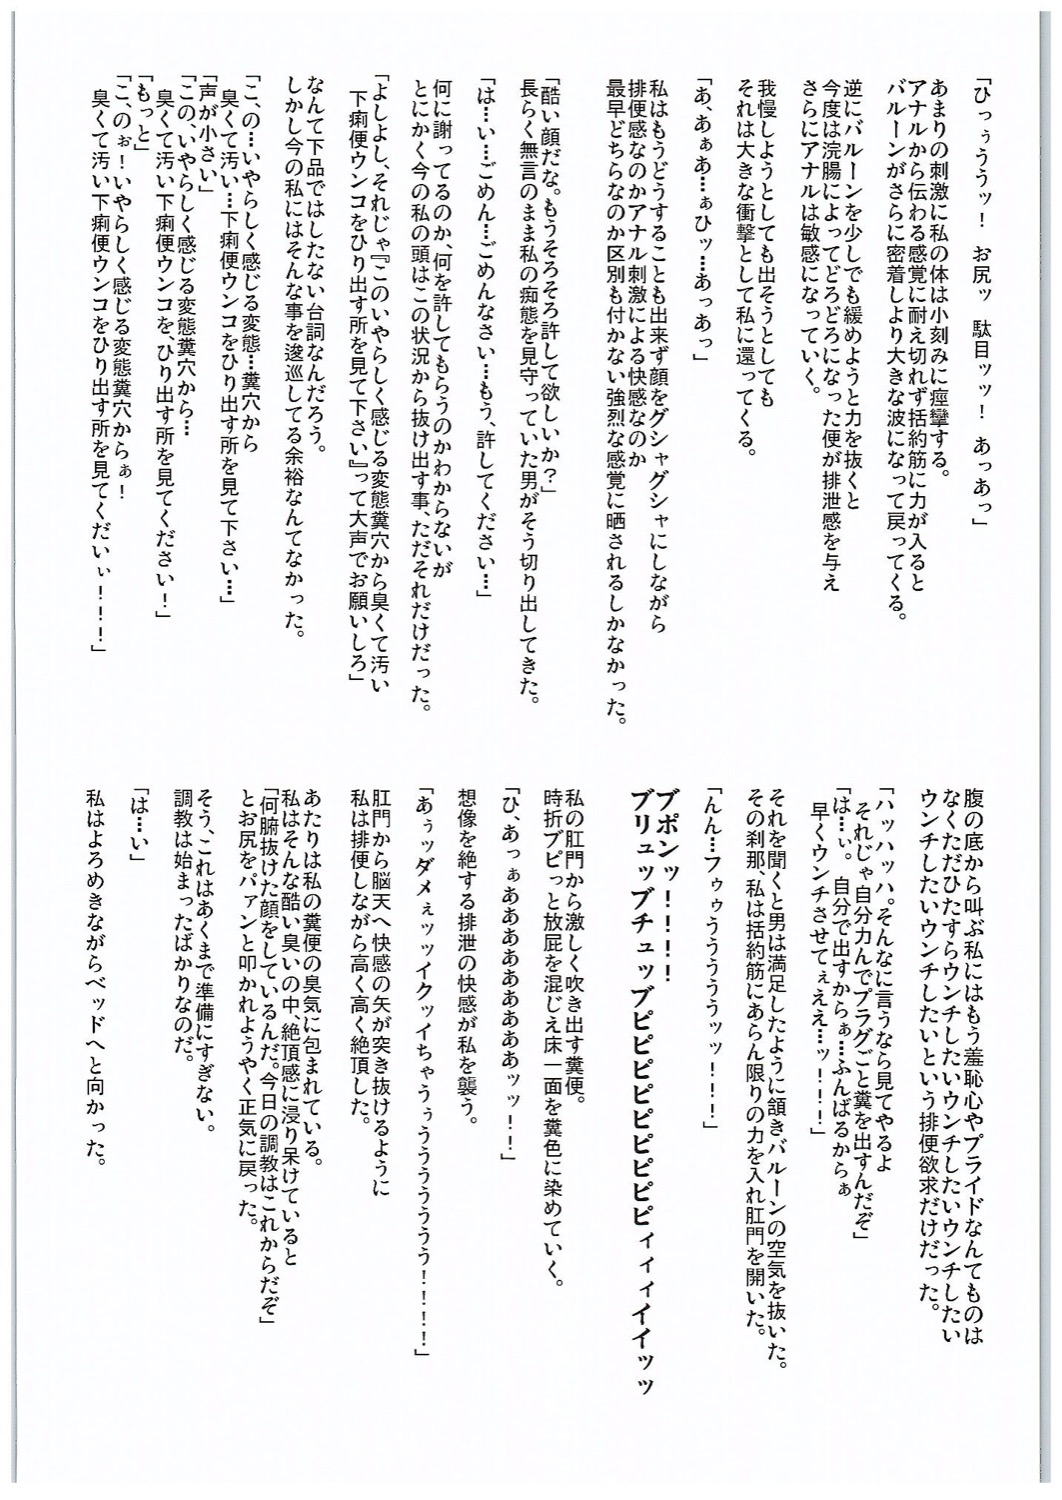 「ひっぅううッ！　お尻ッ　駄目ッッ！　あっあっ」
あまりの刺激に私の体は小刻みに痙攣する。
アナルから伝わる感覚に耐え切れず括約筋に力が入ると
バルーンがさらに密着しより大きな波になって戻ってくる。
逆にバルーンを少しでも緩めようと力を抜くと
今度は浣腸によってどろどろになった便が排泄感を与え
さらにアナルは敏感になっていく。
我慢しようとしても出そうとしても
それは大きな衝撃として私に還ってくる。
「あ、あぁあ…ぁひッ…あっあっ」
私はもうどうすることも出来ず顔をグシャグシャにしながら
排便感なのかアナル刺激による快感なのか
最早どちらなのか区別も付かない強烈な感覚に晒されるしかなかった。
「酷い顔だな。もうそろそろ許して欲しいか？」
長らく無言のまま私の痴態を見守っていた男がそう切り出してきた。
「は…い…ごめん…ごめんなさい…もう、許してください…」
何に謝ってるのか、何を許してもらうのかわからないが
とにかく今の私の頭はこの状況から抜け出す事、ただそれだけだった。
「よしよし、それじゃ『このいやらしく感じる変態糞穴から臭くて汚い
下痢便ウンコをひり出す所を見て下さい』って大声でお願いしろ」
なんて下品ではしたない台詞なんだろう。
しかし今の私にはそんな事を逡巡してる余裕なんてなかった。
「こ、の…いやらしく感じる変態…糞穴から
臭くて汚い…下痢便ウンコをひり出す所を見て下さい…」
「声が小さい」
「この、いやらしく感じる変態糞穴から…
臭くて汚い下痢便ウンコを、ひり出す所を見てください！」
「もっと」
「こ、のぉ！いやらしく感じる変態糞穴からぁ！
臭くて汚い下痢便ウンコをひり出す所を見てくだいぃ！！！」
腹の底から叫ぶ私にはもう羞恥心やプライドなんてものは
なくただひたすらウンチしたいウンチしたいウンチしたい
ウンチしたいウンチしたいという排便欲求だけだった。
「ハッハッハ。そんなに言うなら見てやるよ
それじゃ自分力んでプラグごと糞を出すんだぞ」
「は…ぃ。自分で出すからぁ…ふんばるからぁ
早くウンチさせてぇええ…ッ！！！」
それを聞くと男は満足したように頷きバルーンの空気を抜いた。
その刹那、私は括約筋にあらん限りの力を入れ肛門を開いた。
「んん…フゥゥううううッッ！！！」
ブポンッ！！！！
ブリュッブチュッブピピピピピピピピィィィイイッッ
私の肛門から激しく吹き出す糞便。
時折ブピっと放屁を混じえ床一面を糞色に染めていく。
「ひ、あっぁああああああああッッ！！」
想像を絶する排泄の快感が私を襲う。
「あぅッダメぇッッイクッイちゃうぅうううううう！！！！」
肛門から脳天へ快感の矢が突き抜けるように
私は排便しながら高く高く絶頂した。
あたりは私の糞便の臭気に包まれている。
私はそんな酷い臭いの中、絶頂感に浸り呆けていると
「何腑抜けた顔をしているんだ。今日の調教はこれからだぞ」
とお尻をパァンと叩かれようやく正気に戻った。
そう、これはあくまで準備にすぎない。
調教は始まったばかりなのだ。
「は…い」
私はよろめきながらベッドへと向かった。